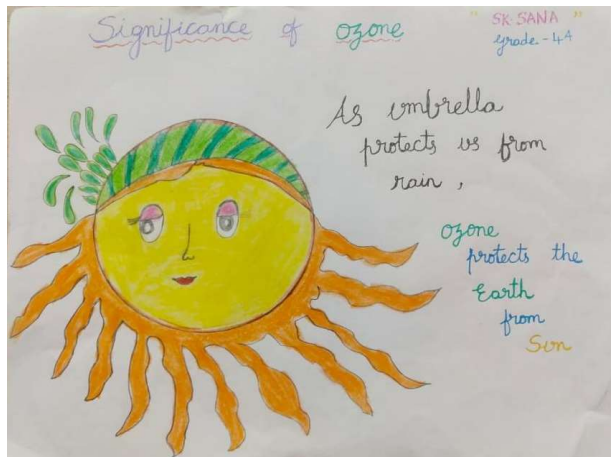 Significance of Ozone
" SK.SANA "
Grade - 4A
As umbrella
protects us from
rain ,
Ozone
protects the
Earth
from
Sun